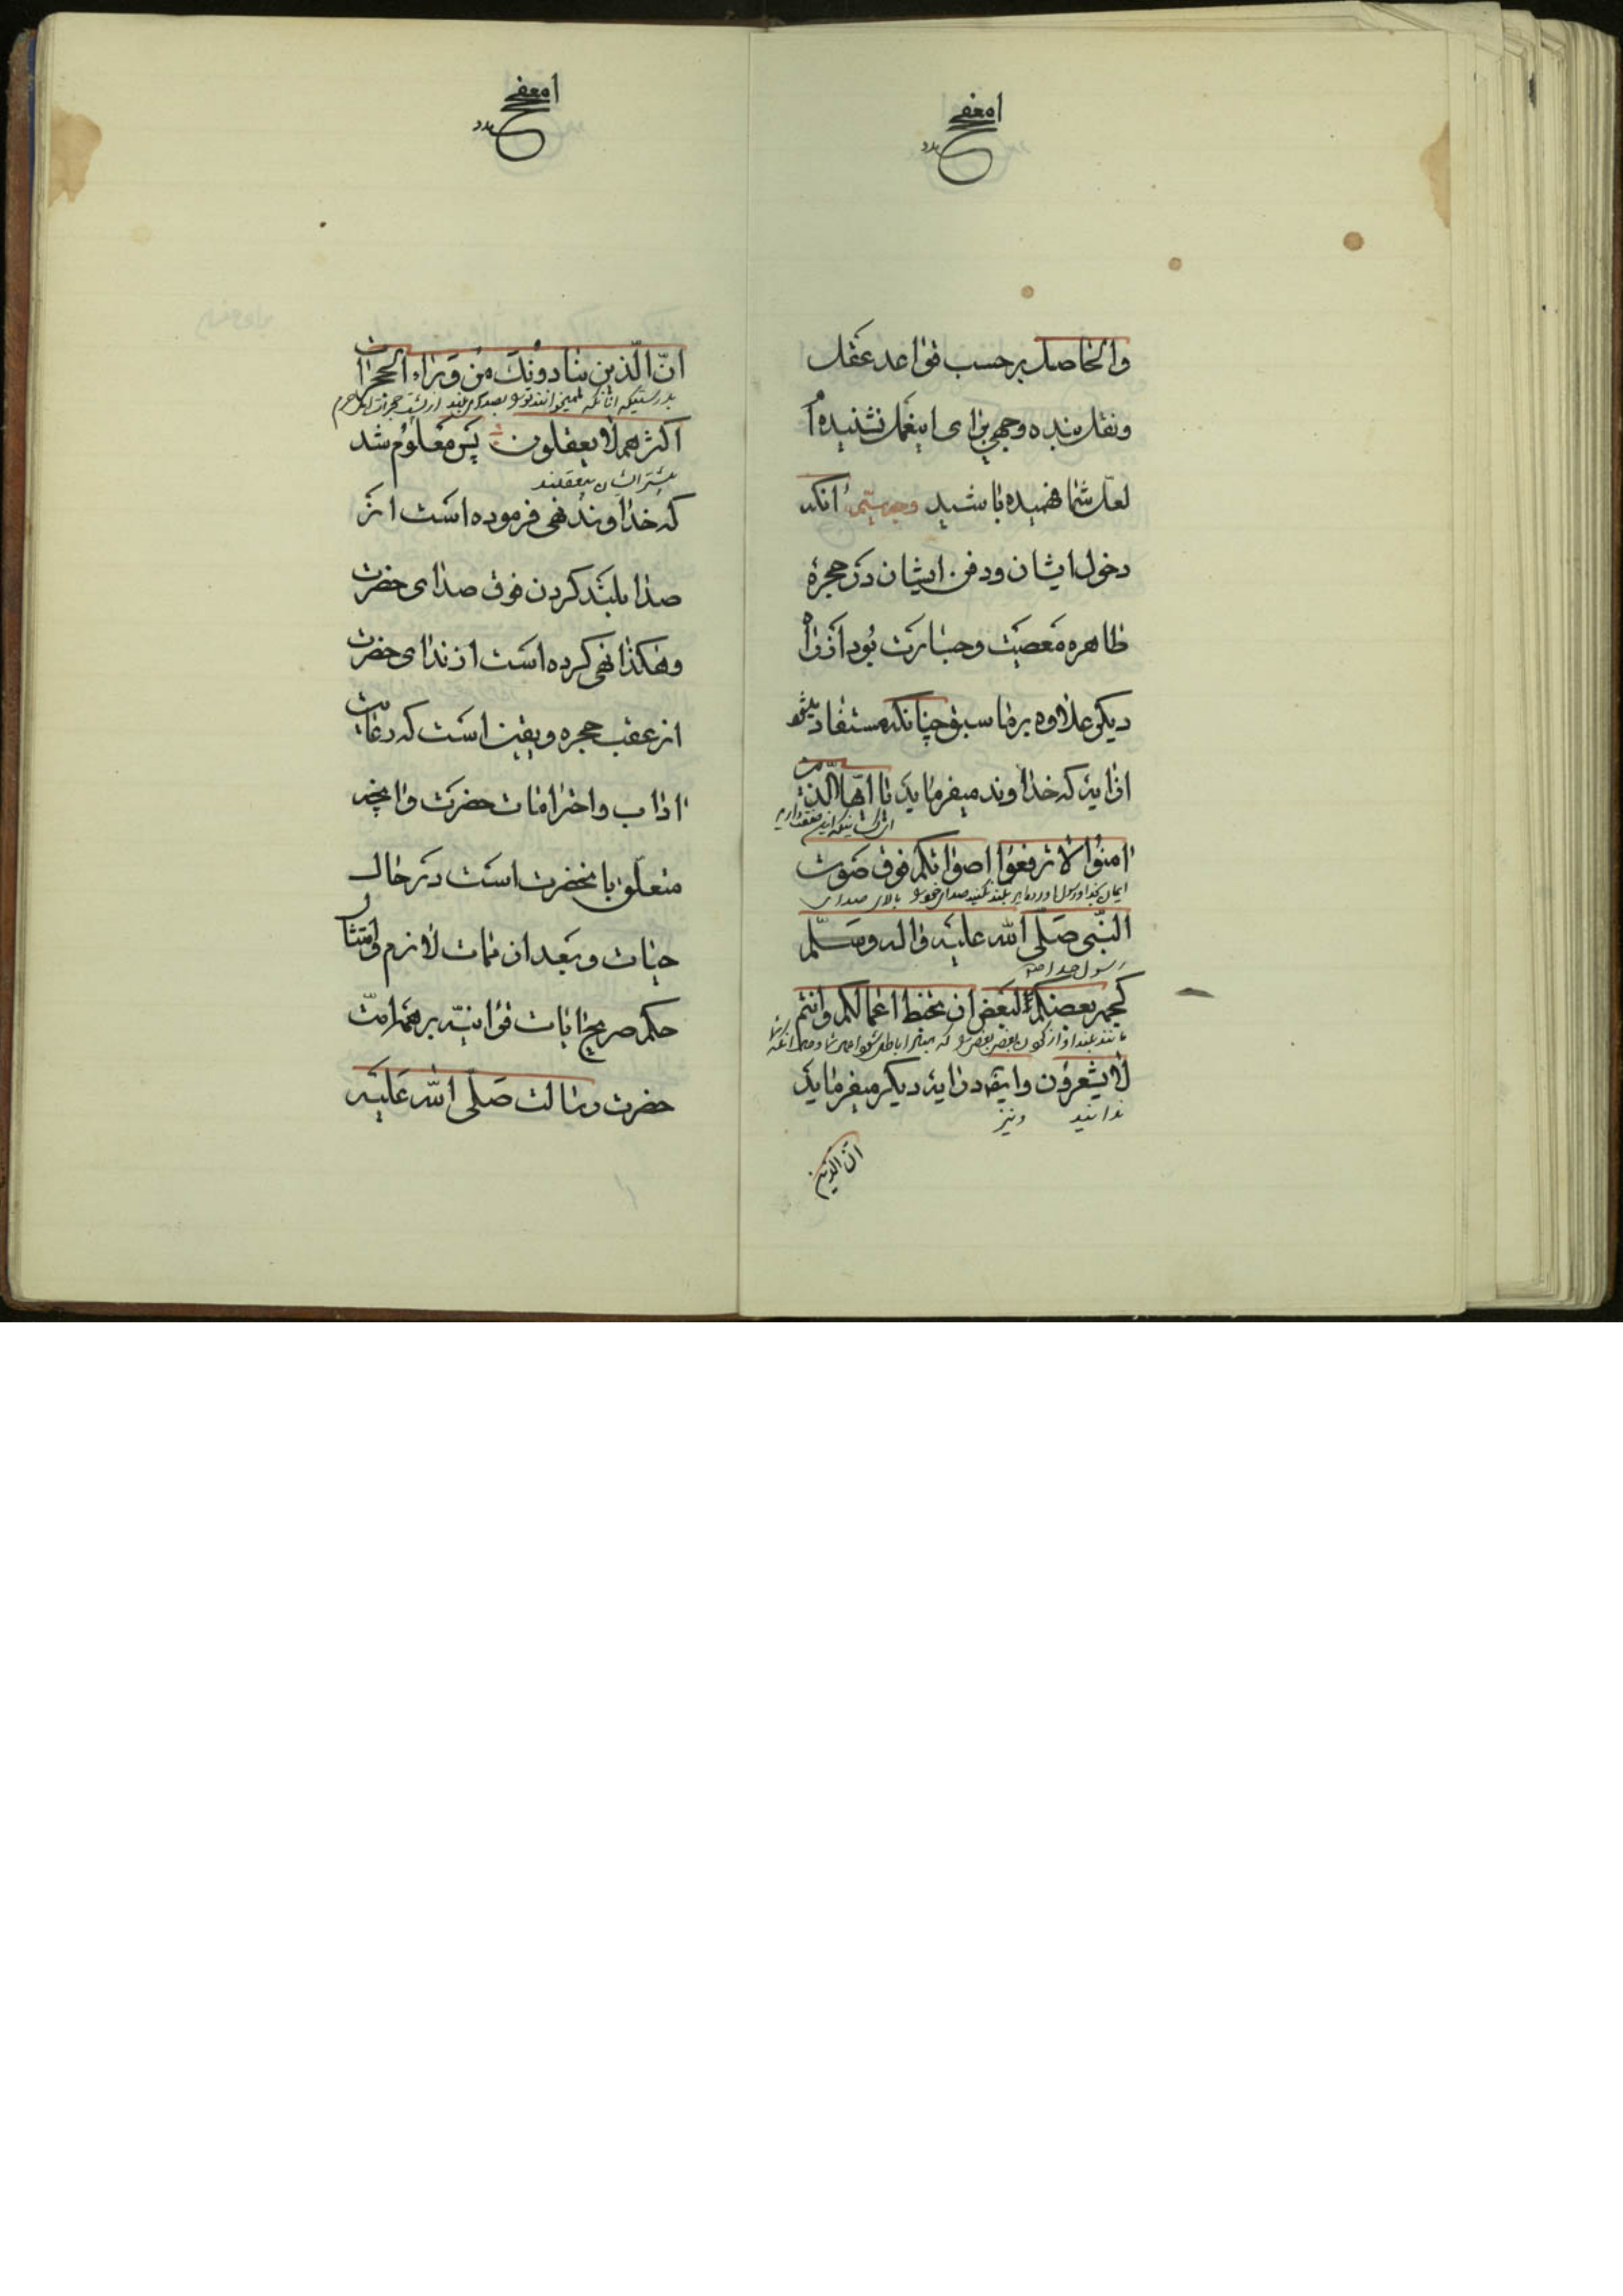 والحاصل بر حسب قواعد عقل
ونقل بنده وجهی برای اینعمل نشنیده‌ام
لعلّ شما فهمیده باشید وجه سیّم آنکه
دخول ایشان ودفن ایشان در حجرهٔ
طاهره معصیت وجسارت بود از راه
دیگر علاوه بر ما سبق چنانکه مستفاد میشود
از آیه که خداوند میفرماید یا ایّها الّذین
امنوا لا ترفعوا اصواتکم فوق صوت
بلند نکنید صدای خود را بالای صدای
النّبی صلّی الله علیه واله وسلّم
رسول خدا
کجهر بعضکم لبعض ان تحبط اعمالکم وانتم
لا یشعرون وایضه در آیه دیگر میفرماید
ندانید ونیز
انّ الذین
انّ الّذین ینادونک من وراء الحجرات
بدرستیکه انانکه میخوانند تو را بصدای بلند از پشت حجرات
اکثرهم لا یعقلون پس معلوم شد
بیشتر ایشان بیعقلند
که خداوند نهی فرموده است از
صدا بلند کردن فوق صدای حضرت
وهکذا نهی کرده است از ندای حضرت
از عقب حجره ویقین است که رعایت
اداب واحترامات حضرت وانچه
متعلّق بانحضرت است در حال
حیات وبعد از ممات لازم وامتثال
حکم صریح ایات قرانیّه بر همه امّت
حضرت رسالت صلّی الله علیه